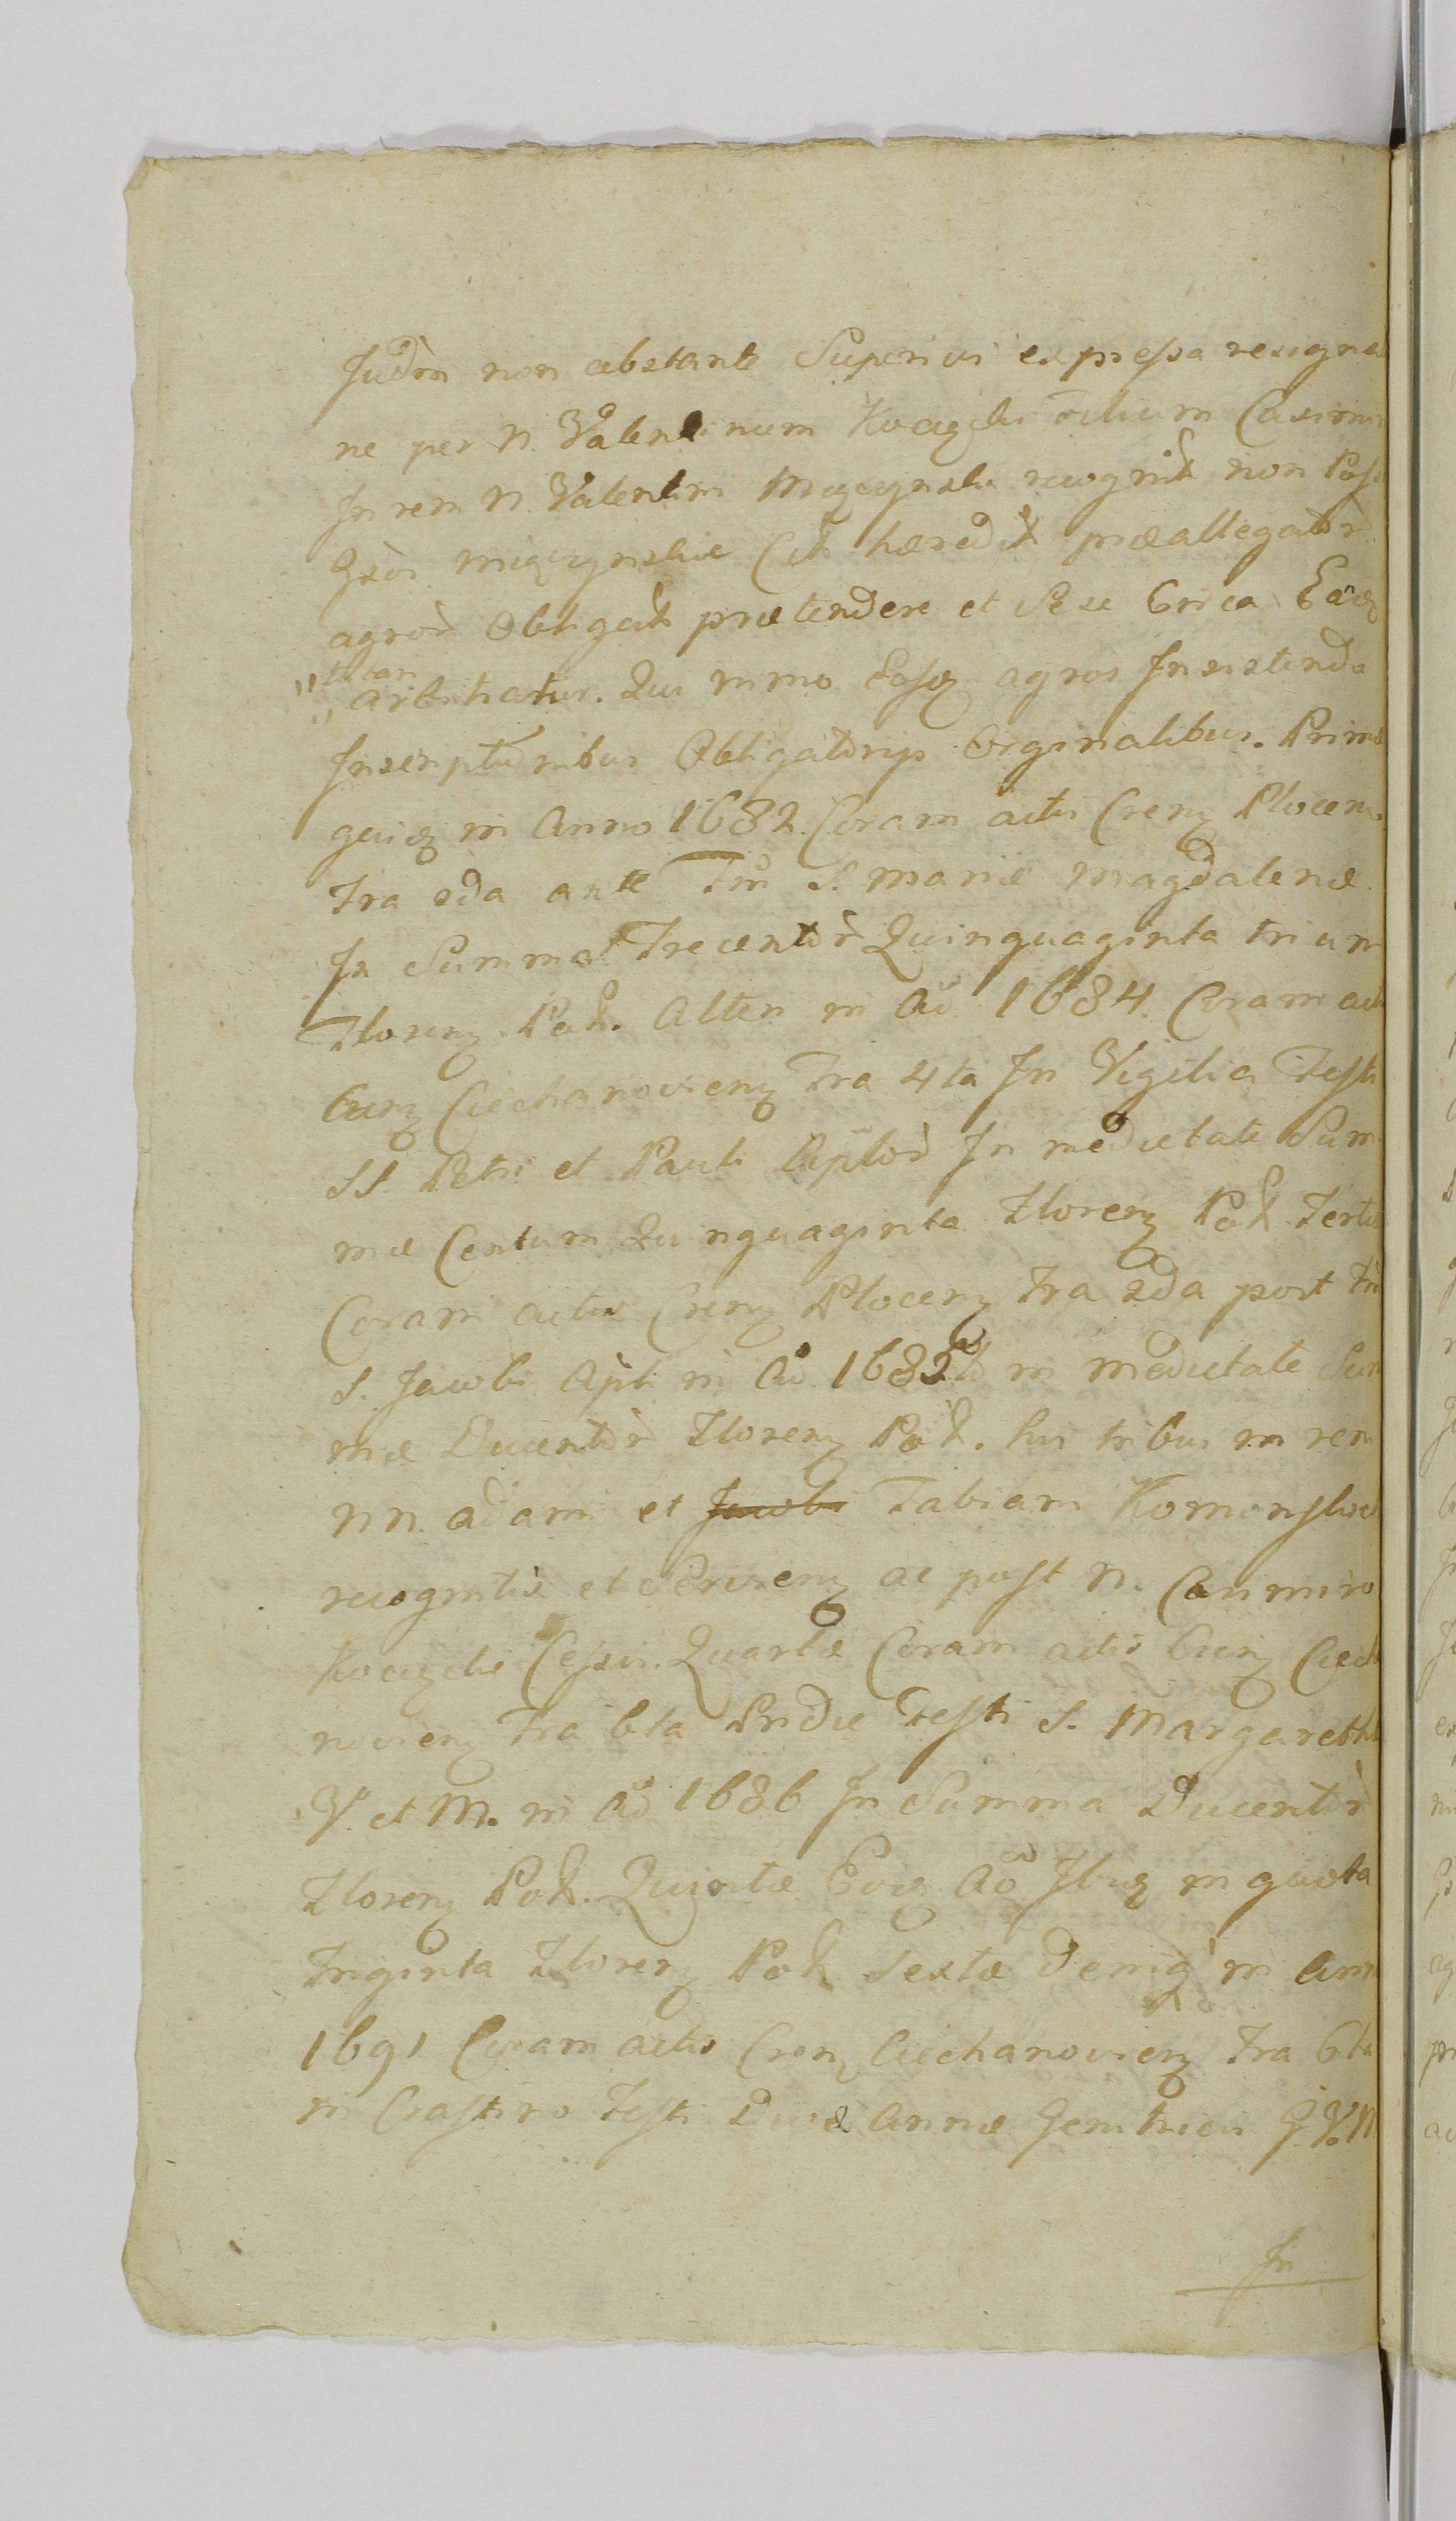 Judm non obstante Superius expressa resigna
ne per N. Valentinum Koczęski Filium Casimir
In rem N. Valentini Mączynski recognit non Posse
Gsos Mączynskie Cit hæredit præallegator
agror Obligat prætendere et Sese Circa Easq
tuean
arbitratur. Qui immo Eosq agros Insistendo
Inscriptionibus Obligatorys Orginalibus. Prima
quidq in Anno 1682. Coram actis Crenz Plocen.
Fra 2da ante Fm S. Mariæ Magdalenæ
In Summa Trecentor Quinquaginta trium
Florenz Pol. Altera in Ao 1684. Coram act
Crenz Ciechanovienz Fra 4ta In Vigilia Festi
SS. Petri et Pauli Aplor In medietate Sum
mæ Centum Quinquaginta Florenz Pol. Tertia
Coram actis Crenz Plocenz Fra 2da post Fm
S. Jacobi Apli in Ao 1682do in medietate Sum
mæ Ducentor Florenz Pol. his tribus in rem
NN. Adami et Jacobi Fabiani Komonskie
recognitis et Servienz ac post N. Casimiro
Koczęski Cessis. Quarta Coram actis Crenz Ciech
novienz Fra 6ta Pridie Festi S. Margareth
V. et M. in Ao 1686 In Summa Ducentor
Florenz Pol. Quinta Eoq Ao Ibiq in quota
Triginta Florenz Pol. Sexta Deniq in Ann
1691 Coram actis Crenz Ciechanovienz Fra 6ta
in Crastino Festi Divæ Annæ Genitricis G. V. M
In